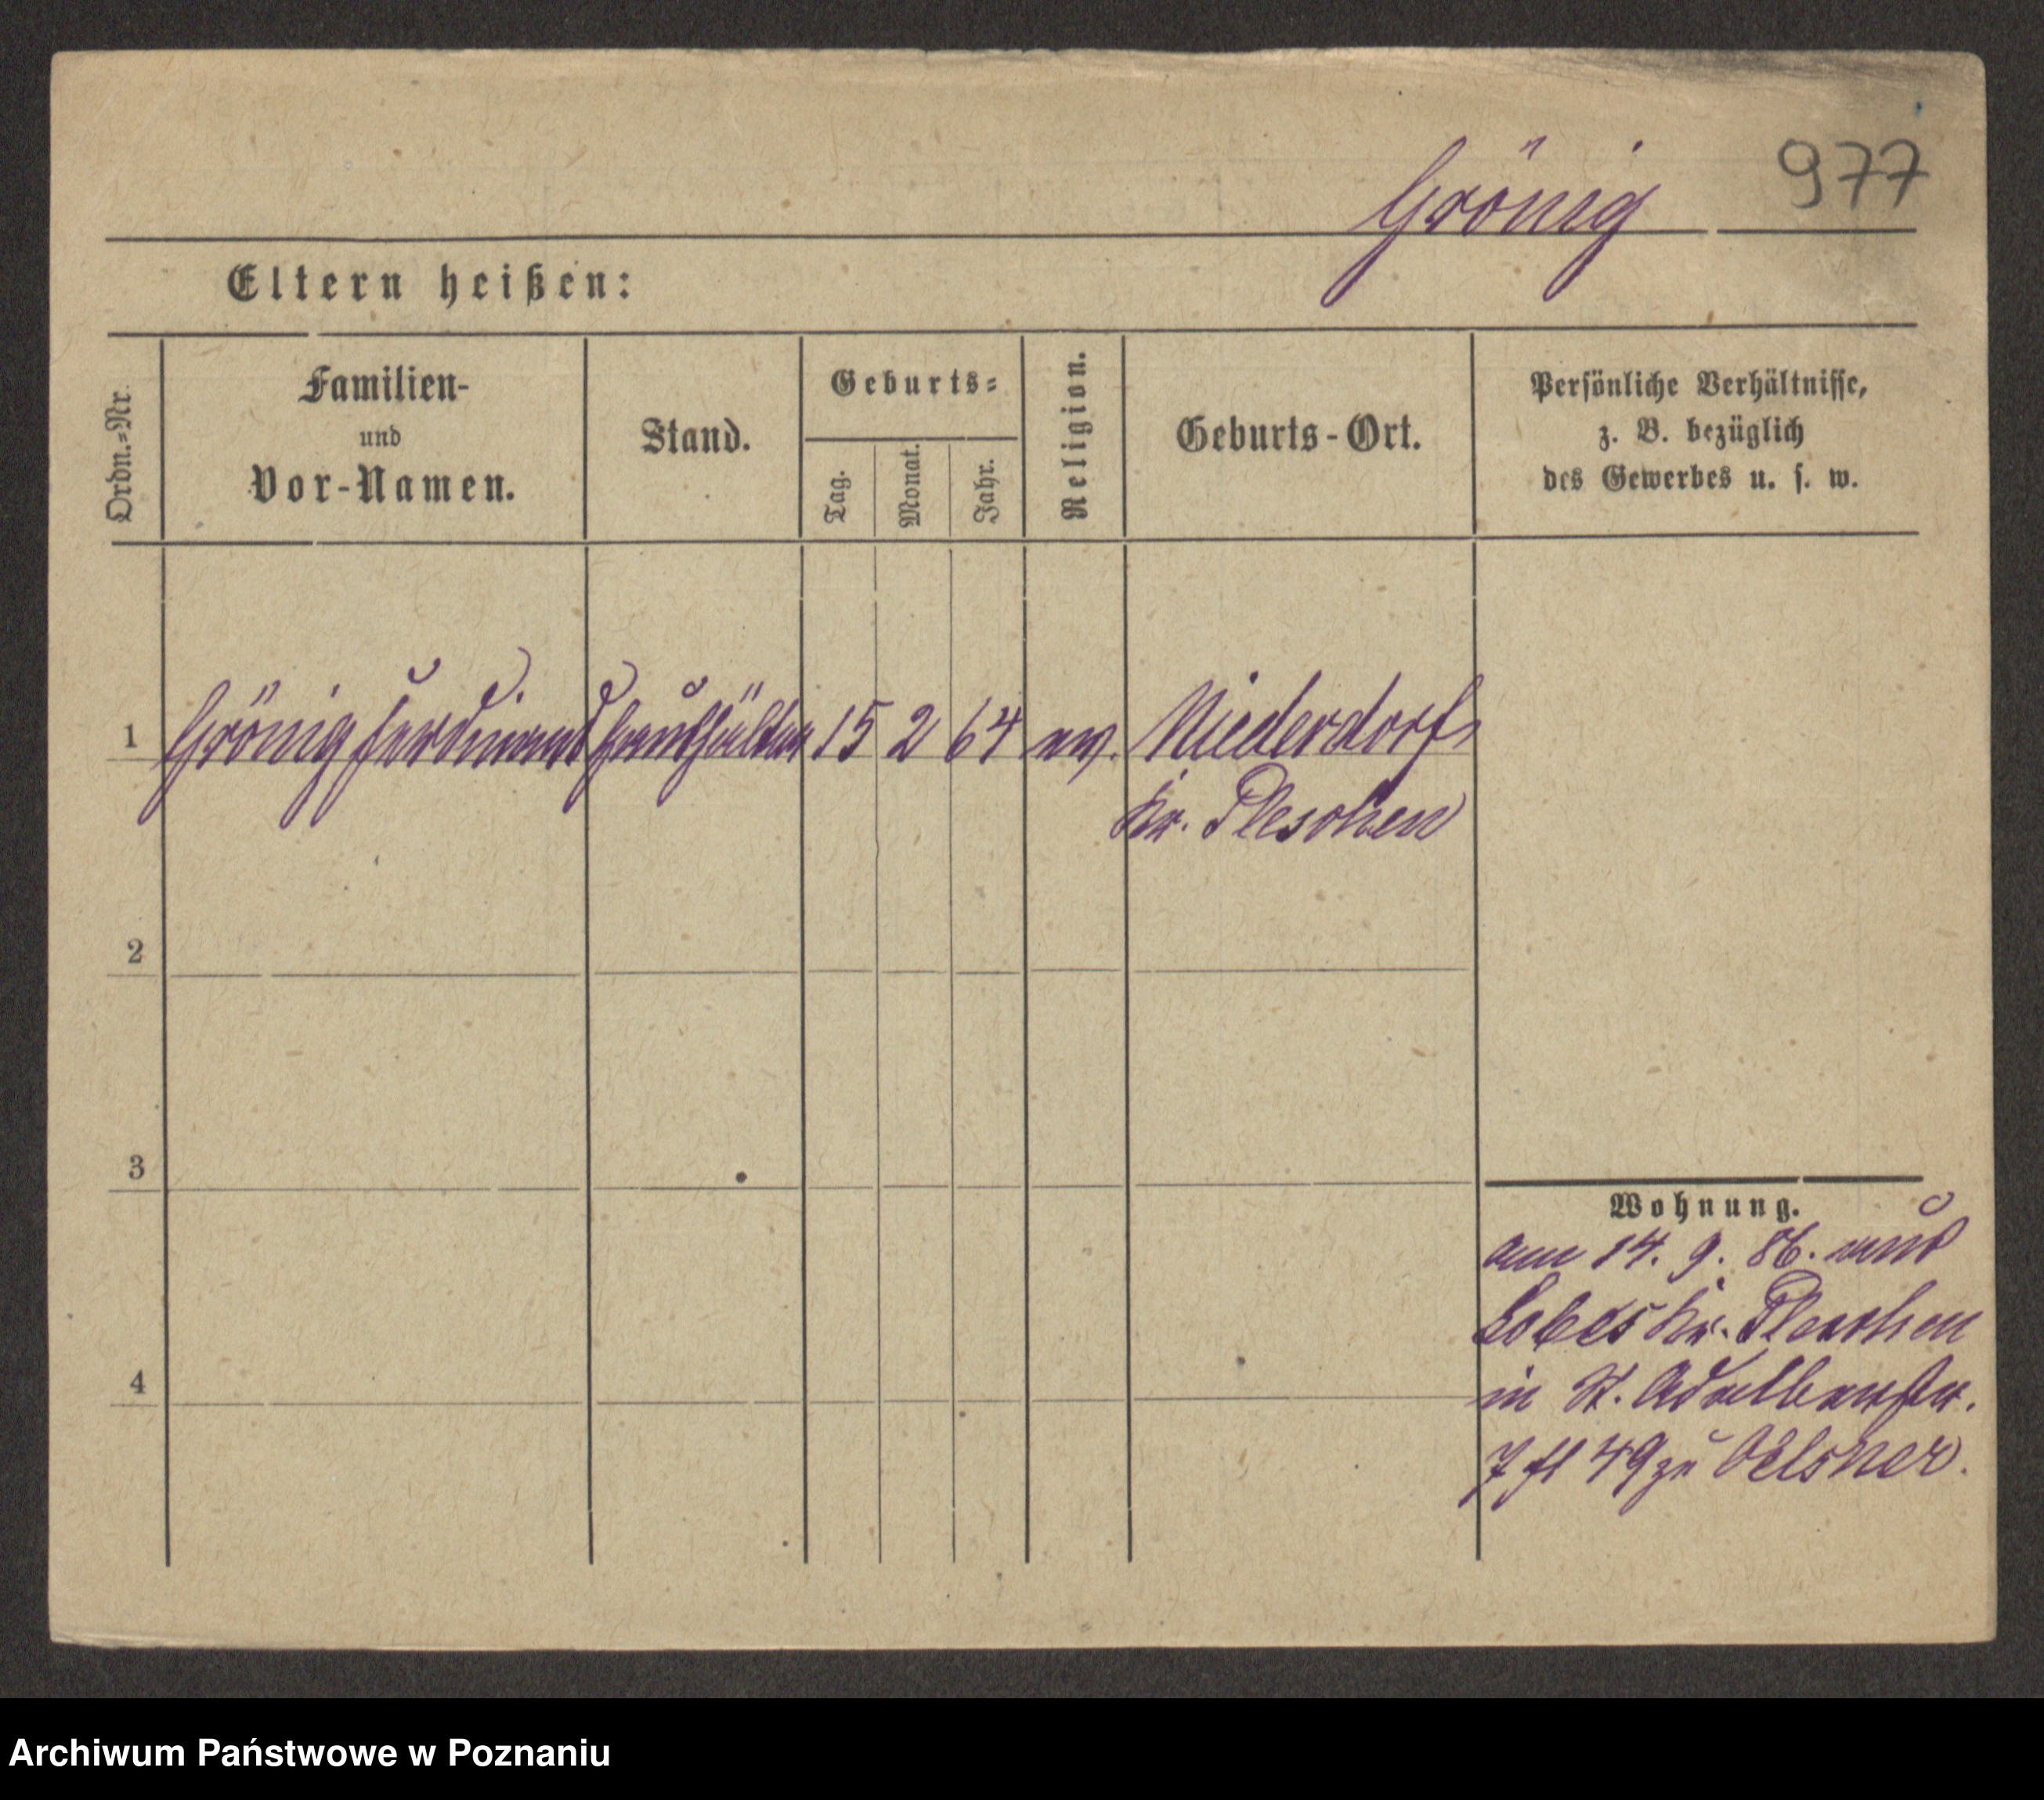 Grönig 977
Eltern heißen:
Ordn.-Nr.
Familien-
und
Vor-Namen.
Stand.
Geburts-
Tag.
Monat.
Jahr.
Religion.
Geburts-Ort.
Persönliche Verhältnisse,
z. B. bezüglich
des Gewerbes u. s. w.
1 Grönig Ferdinand Haushälter 15 2 64 ev. Niederdorf,
Kr. Pleschen
2
3
4
Wohnung.
am 14. 9. 86. aus
Kr. Pleschen
in St. Adalbertstr.
7 49 zu Oelsner.
Archiwum Państwowe w Poznaniu